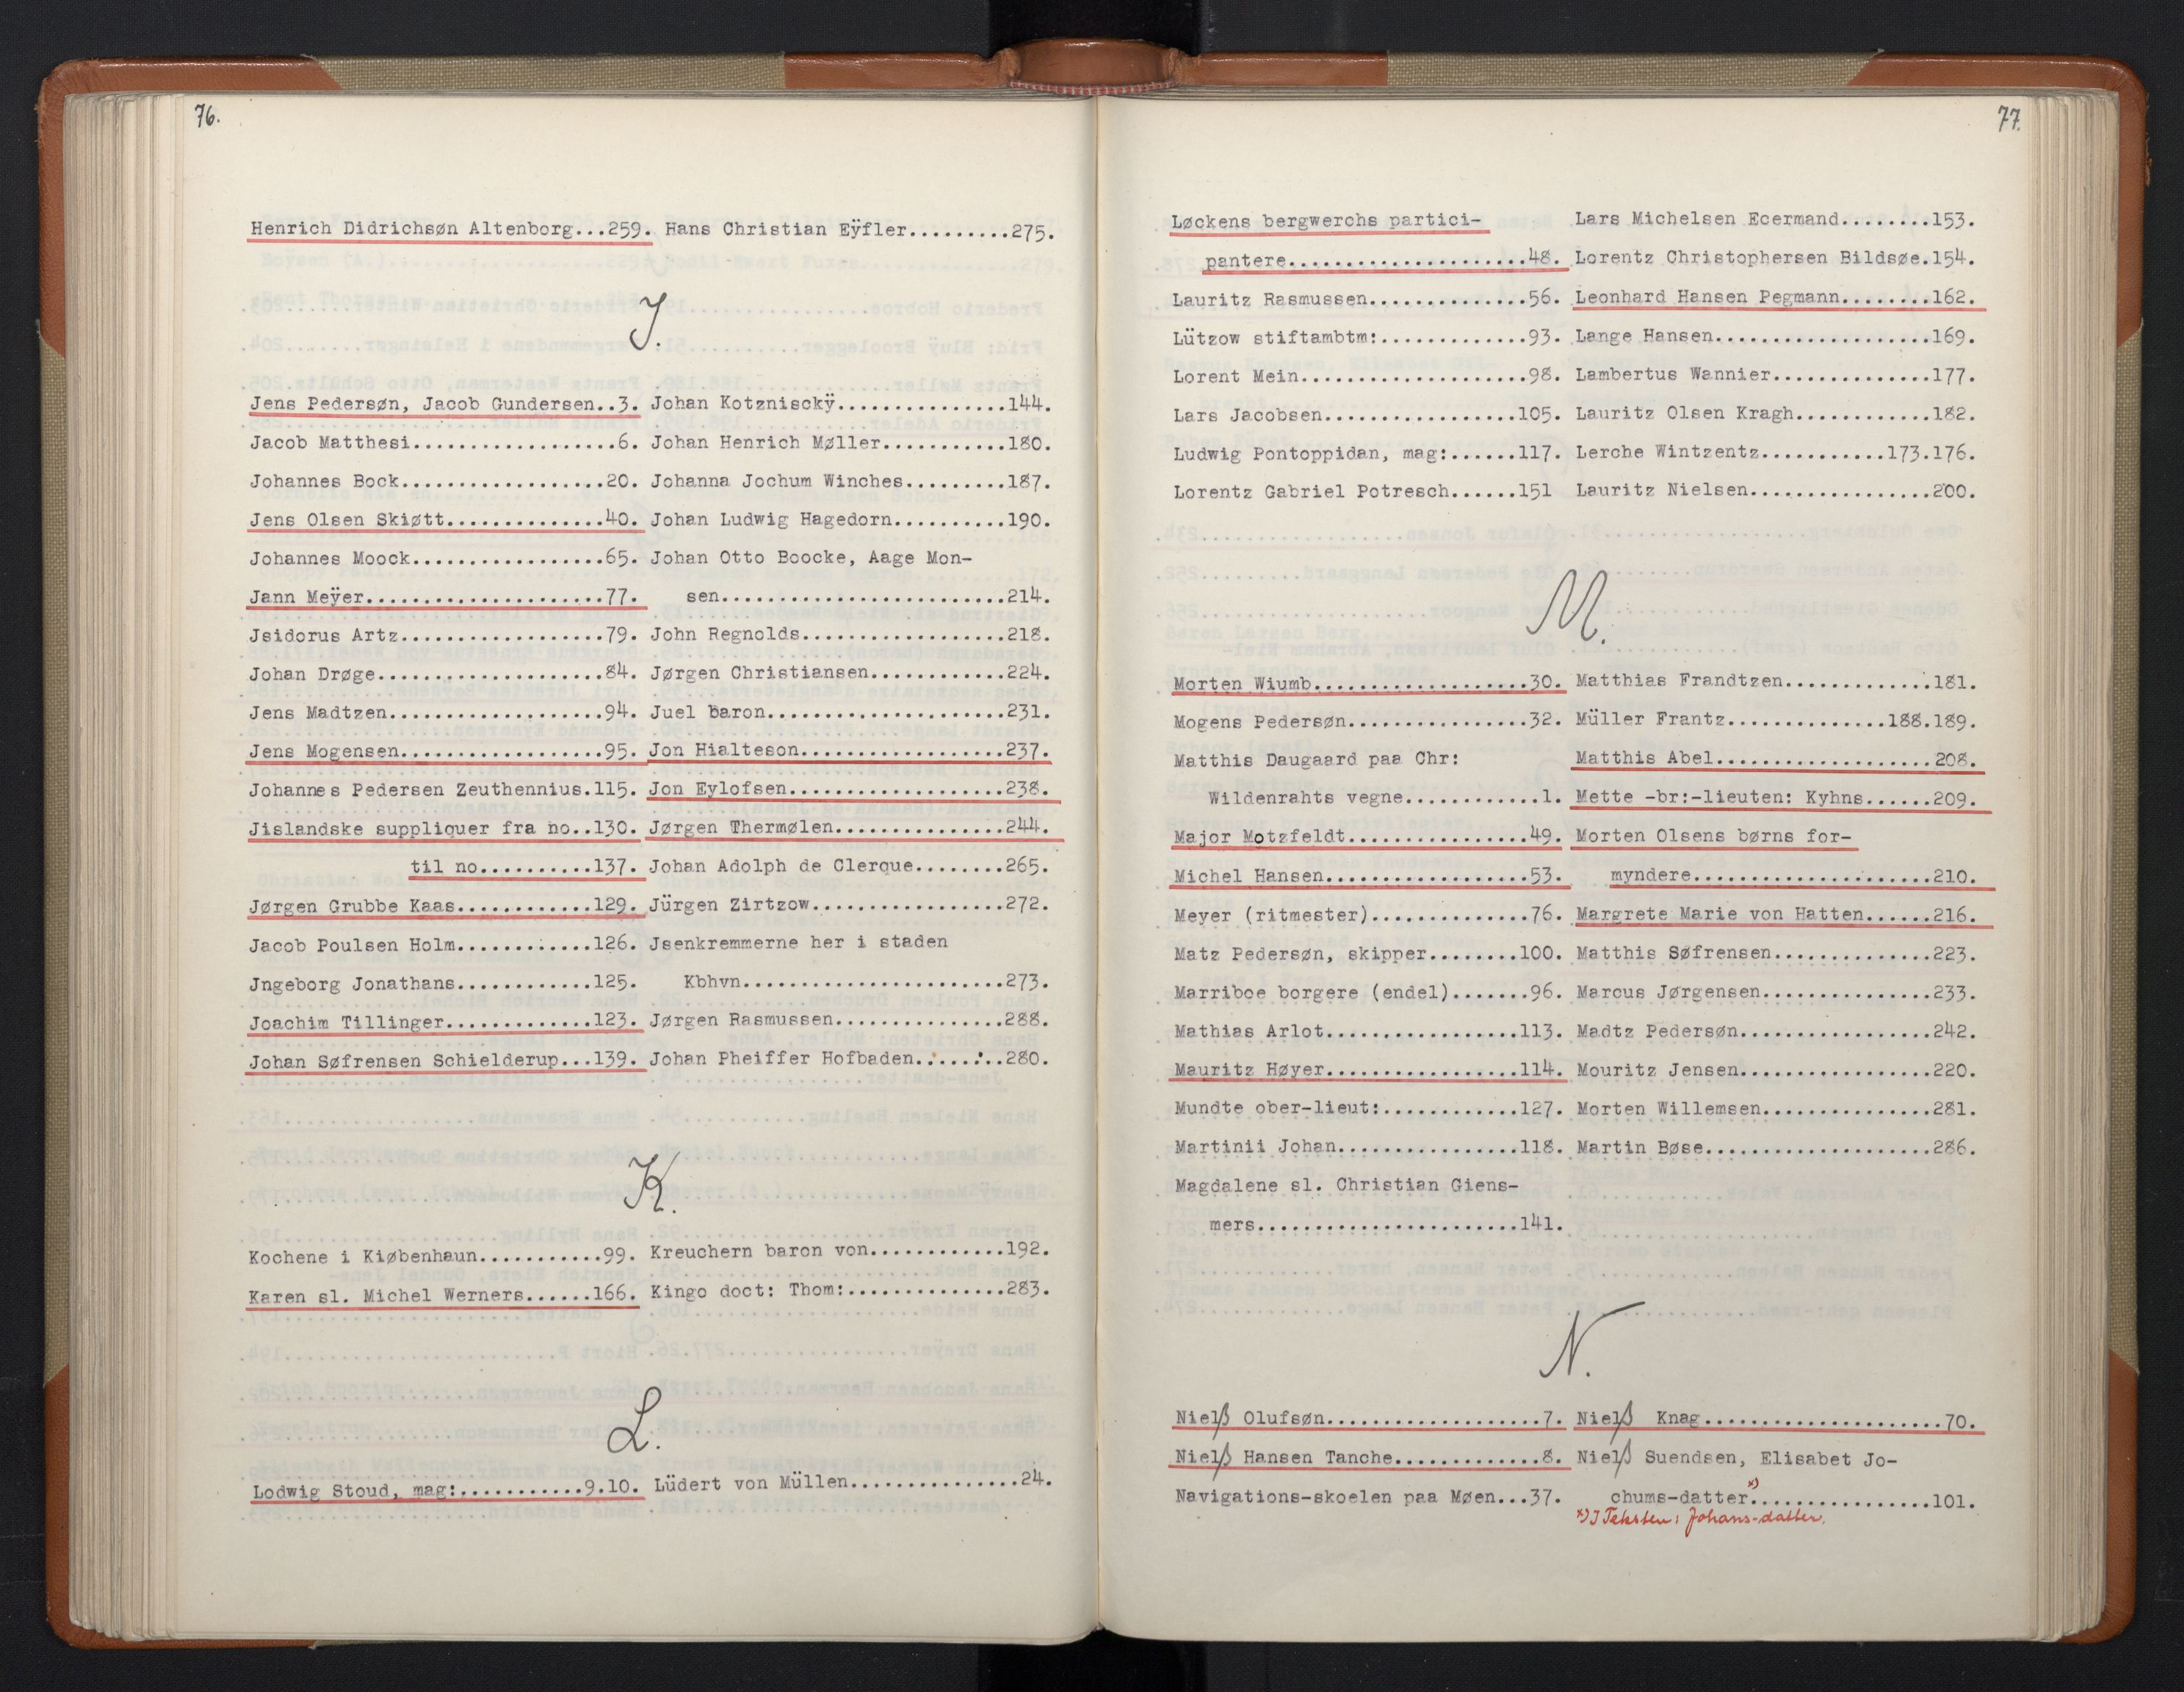 76.
Henrich Didrichsøn Altenborg...259.
Hans Christian Eÿfler.........275.
J.
Jens Pedersøn, Jacob Gundersen..3.
Jacob Matthesi..................6.
Johannes Bock..................20.
Jens Olsen Skiøtt..............40.
Johannes Moock.................65.
Jann Meÿer.....................77.
Jsidorus Artz..................79.
Johan Drøge....................84.
Jens Madtzen...................94.
Jens Mogensen..................95.
Johannes Pedersen Zeuthennius.115.
Jislandske suppliquer fra no..130.
til no..........137.
Jørgen Grubbe Kaas............129.
Jacob Poulsen Holm............126.
Jngeborg Jonathans............125.
Joachim Tillinger.............123.
Johan Søfrensen Schielderup...139.
Johan Kotznisckÿ...............144.
Johan Henrich Møller...........180.
Johanna Jochum Winches.........187.
Johan Ludwig Hagedorn..........190.
Johan Otto Boocke, Aage Mon-
sen.........................214.
John Regnolds..................218.
Jørgen Christiansen............224.
Juel baron.....................231.
Jon Hialteson..................237.
Jon Eylofsen...................238.
Jørgen Thermølen...............244.
Johan Adolph de Clerque........265.
Jürgen Zirtzow.................272.
Jsenkremmerne her i staden
Kbhvn.......................273.
Jørgen Rasmussen...............288.
Johan Pheiffer Hofbaden........280.
K.
Kochene i Kiøbenhaun...........99.
Karen sl. Michel Werners......166.
Kreuchern baron von............192.
Kingo doct: Thom:..............283.
L.
Lodwig Stoud, mag:...........9.10.
Lüdert von Müllen...............24.
77.
Løckens bergwerchs partici-
pantere.....................48.
Lauritz Rasmussen..............56.
Lützow stiftambtm:.............93.
Lorent Mein....................98.
Lars Jacobsen.................105.
Ludwig Pontoppidan, mag:......117.
Lorentz Gabriel Potresch......151
Lars Michelsen Ecermand........153.
Lorentz Christophersen Bildsøe.154.
Leonhard Hansen Pegmann........162.
Lange Hansen...................169.
Lambertus Wannier..............177.
Lauritz Olsen Kragh............182.
Lerche Wintzentz...........173.176.
Lauritz Nielsen................200.
M.
Morten Wiumb...................30.
Mogens Pedersøn................32.
Matthis Daugaard paa Chr:
Wildenrahts vegne............1.
Major Motzfeldt................49.
Michel Hansen..................53.
Meyer (ritmester)..............76.
Matz Pedersøn, skipper........100.
Marriboe borgere (endel).......96.
Mathias Arlot.................113.
Mauritz Høyer.................114.
Mundte ober-lieut:............127.
Martinii Johan................118.
Magdalene sl. Christian Giens-
mers.......................141.
Matthias Frandtzen.............181.
Müller Frantz..............188.189.
Matthis Abel...................208.
Mette -br:-lieuten: Kyhns......209.
Morten Olsens børns for-
myndere.....................210.
Margrete Marie von Hatten......216.
Matthis Søfrensen..............223.
Marcus Jørgensen...............233.
Madtz Pedersøn.................242.
Mouritz Jensen.................220.
Morten Willemsen...............281.
Martin Bøse....................286.
N.
Nielß Olufsøn...................7.
Nielß Hansen Tanche.............8.
Navigations-skoelen paa Møen...37.
Nielß Knag.....................70.
Nielß Suendsen, Elisabet Jo-
chums-datter*)................101.
*) I Teksten: Johans-datter.